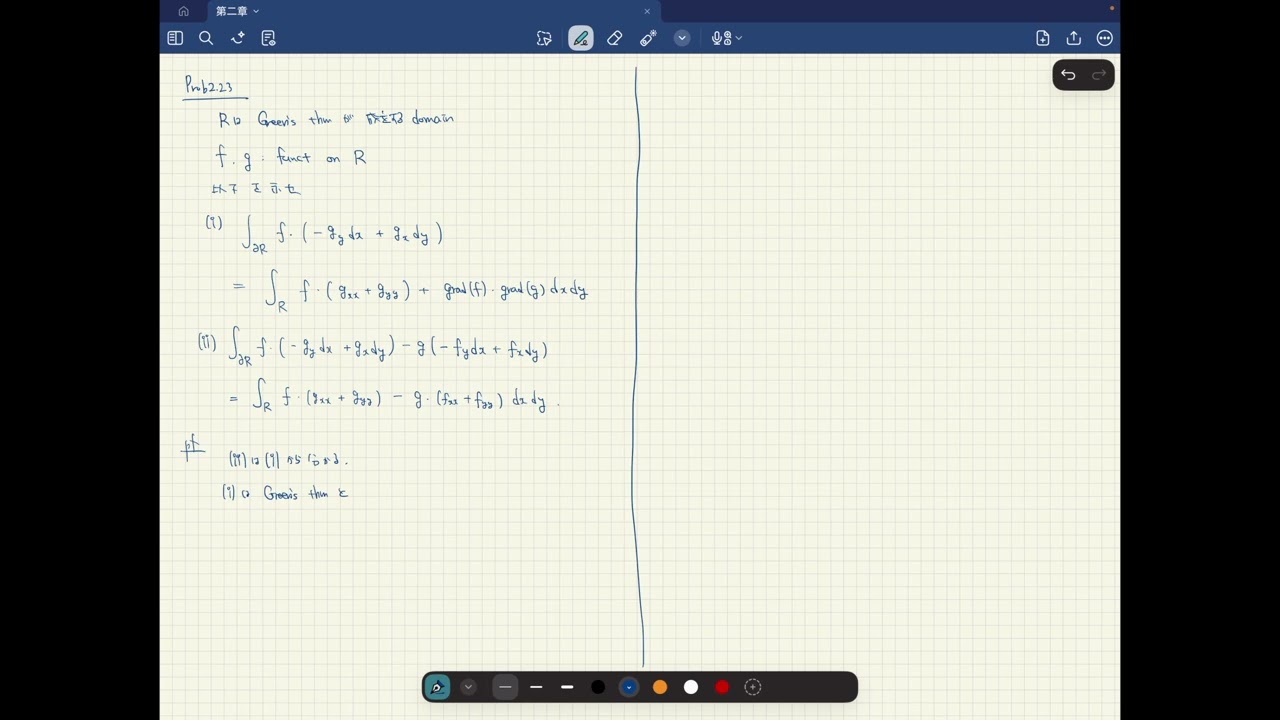 第二章
Prob2.23
Rは Green's thm が 成立する domain
f, g : funct on R
以下 を 示せ
(i) ∫_{∂R} f・(-g_y dx + g_x dy)
= ∫_R f・(g_{xx} + g_{yy}) + grad(f)・grad(g) dxdy
(ii) ∫_{∂R} f・(-g_y dx + g_x dy) - g(-f_y dx + f_x dy)
= ∫_R f・(g_{xx} + g_{yy}) - g・(f_{xx} + f_{yy}) dxdy.
pf
(ii) は (i) から 分かる.
(i) は Green's thm と